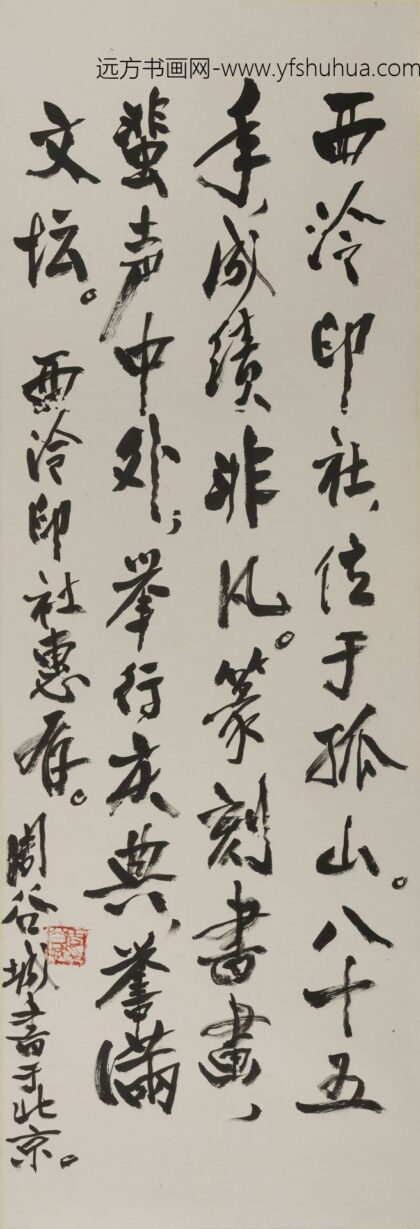 远方书画网-www.yfshuhua.com
西泠印社，位于孤山。八十五
年，成绩非凡。篆刻书画，
蜚声中外；举行庆典，誉满
文坛。 西泠印社惠存。
周谷城书于北京。